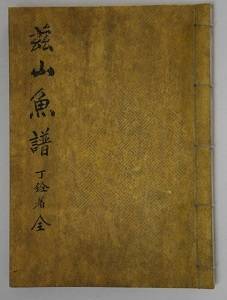 玆山魚譜
丁銓著 全